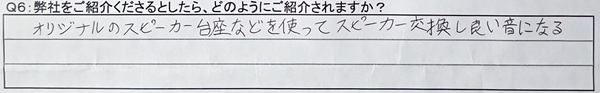 Q6：弊社をご紹介くださるとしたら、どのようにご紹介されますか？
オリジナルのスピーカー台座などを使ってスピーカー交換し良い音になる